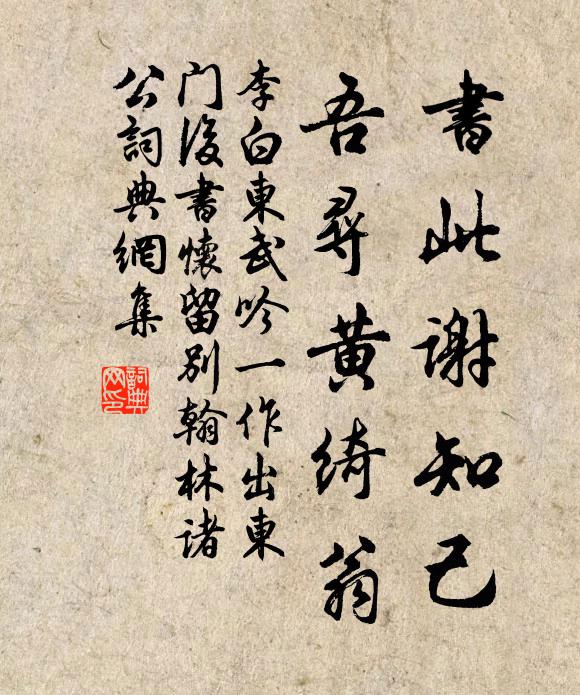 書此謝知己
吾尋黄綺翁
李白東武吟一作出東
門後書懷留别翰林諸
公詞典網集
詞典
网印